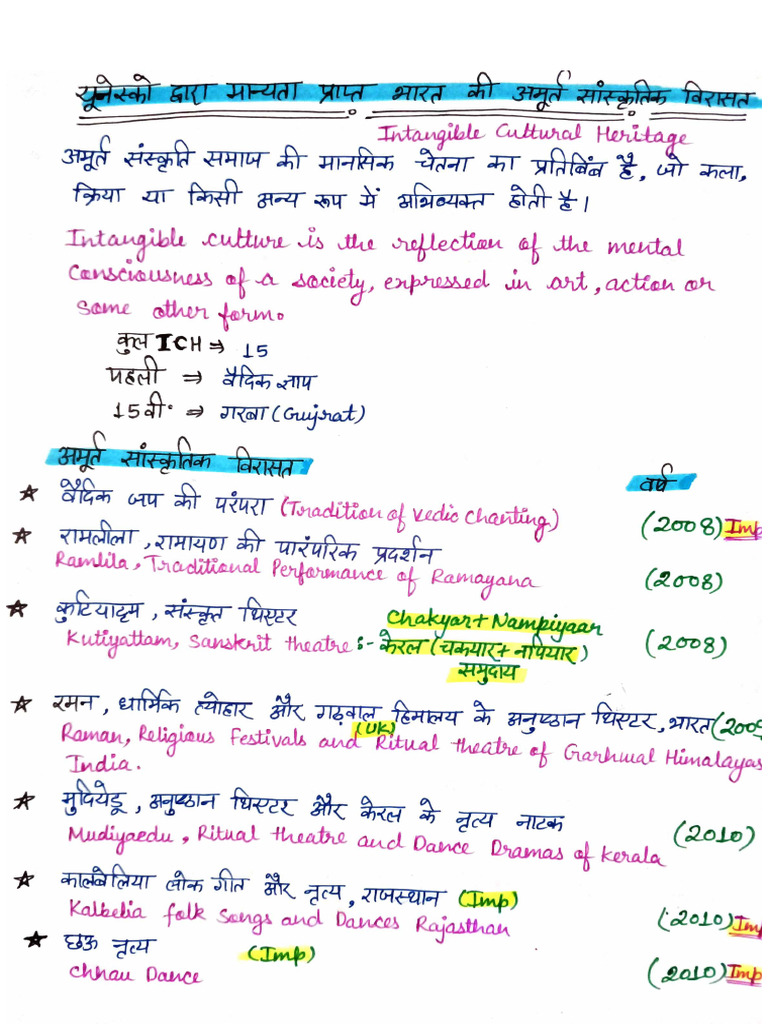 यूनेस्को द्वारा मान्यता प्राप्त भारत की अमूर्त सांस्कृतिक विरासत
Intangible Cultural Heritage
अमूर्त संस्कृति समाज की मानसिक चेतना का प्रतिबिंब है, जो कला,
क्रिया या किसी अन्य रूप में अभिव्यक्त होती है।
Intangible culture is the reflection of the mental
consciousness of a society, expressed in art, action or
some other form.
कुल ICH ⇒ 15
पहली ⇒ वैदिक जाप
15वी ⇒ गरबा (Gujrat)
अमूर्त सांस्कृतिक विरासत वर्ष
☆ वैदिक जप की परंपरा (Tradition of Vedic Chanting) (2008) Imp
☆ रामलीला, रामायण की पारंपरिक प्रदर्शन
Ramlila, Traditional Performance of Ramayana (2008)
☆ कुटियाट्टम, संस्कृत थिएटर Chakyar + Nampiyaar
Kutiyattam, Sanskrit theatre :- केरल (चकयार + नांपियार) (2008)
समुदाय
☆ रमन, धार्मिक त्योहार और गढ़वाल हिमालय के अनुष्ठान थिएटर, भारत (2009
(UK)
Raman, Religious Festivals and Ritual theatre of Garhwal Himalayas
India.
☆ मुदियेडू, अनुष्ठान थिएटर और केरल के नृत्य नाटक
Mudiyaedu, Ritual theatre and Dance Dramas of Kerala (2010)
☆ कालबेलिया लोक गीत और नृत्य, राजस्थान (Imp)
Kalbelia folk Songs and Dances Rajasthan (2010) Imp
☆ छऊ नृत्य (Imp)
Chhau Dance (2010) Imp